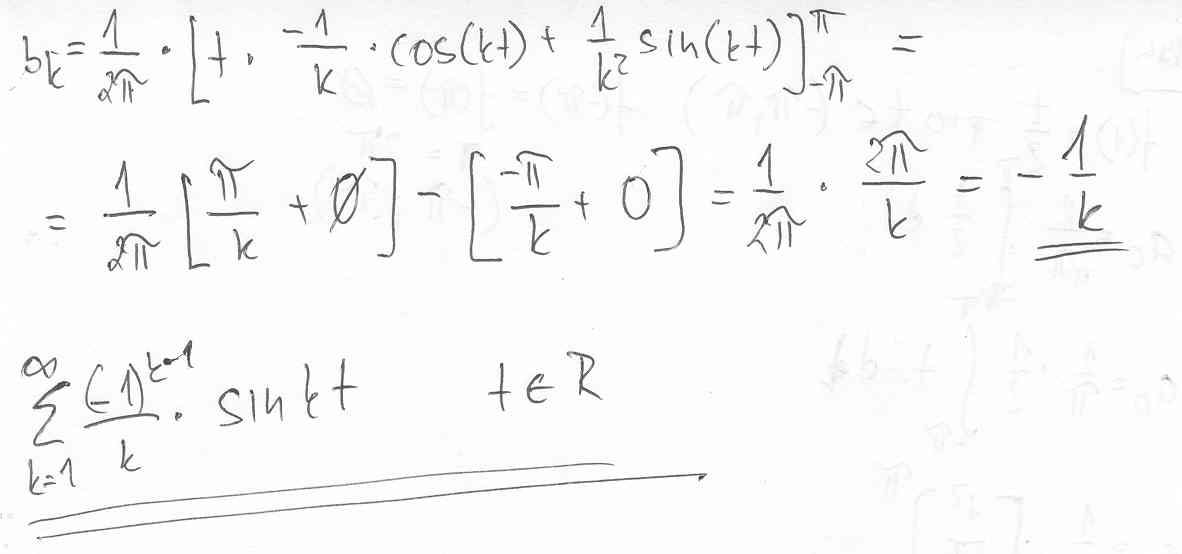 b_k = 1/2π · [t · -1/k · cos(kt) + 1/k² sin(kt)]_{-π}^{π} =
= 1/2π [π/k + 0] - [-π/k + 0] = 1/2π · 2π/k = - 1/k
∑_{k=1}^{∞} (-1)^{k-1}/k · sin kt t ∈ R